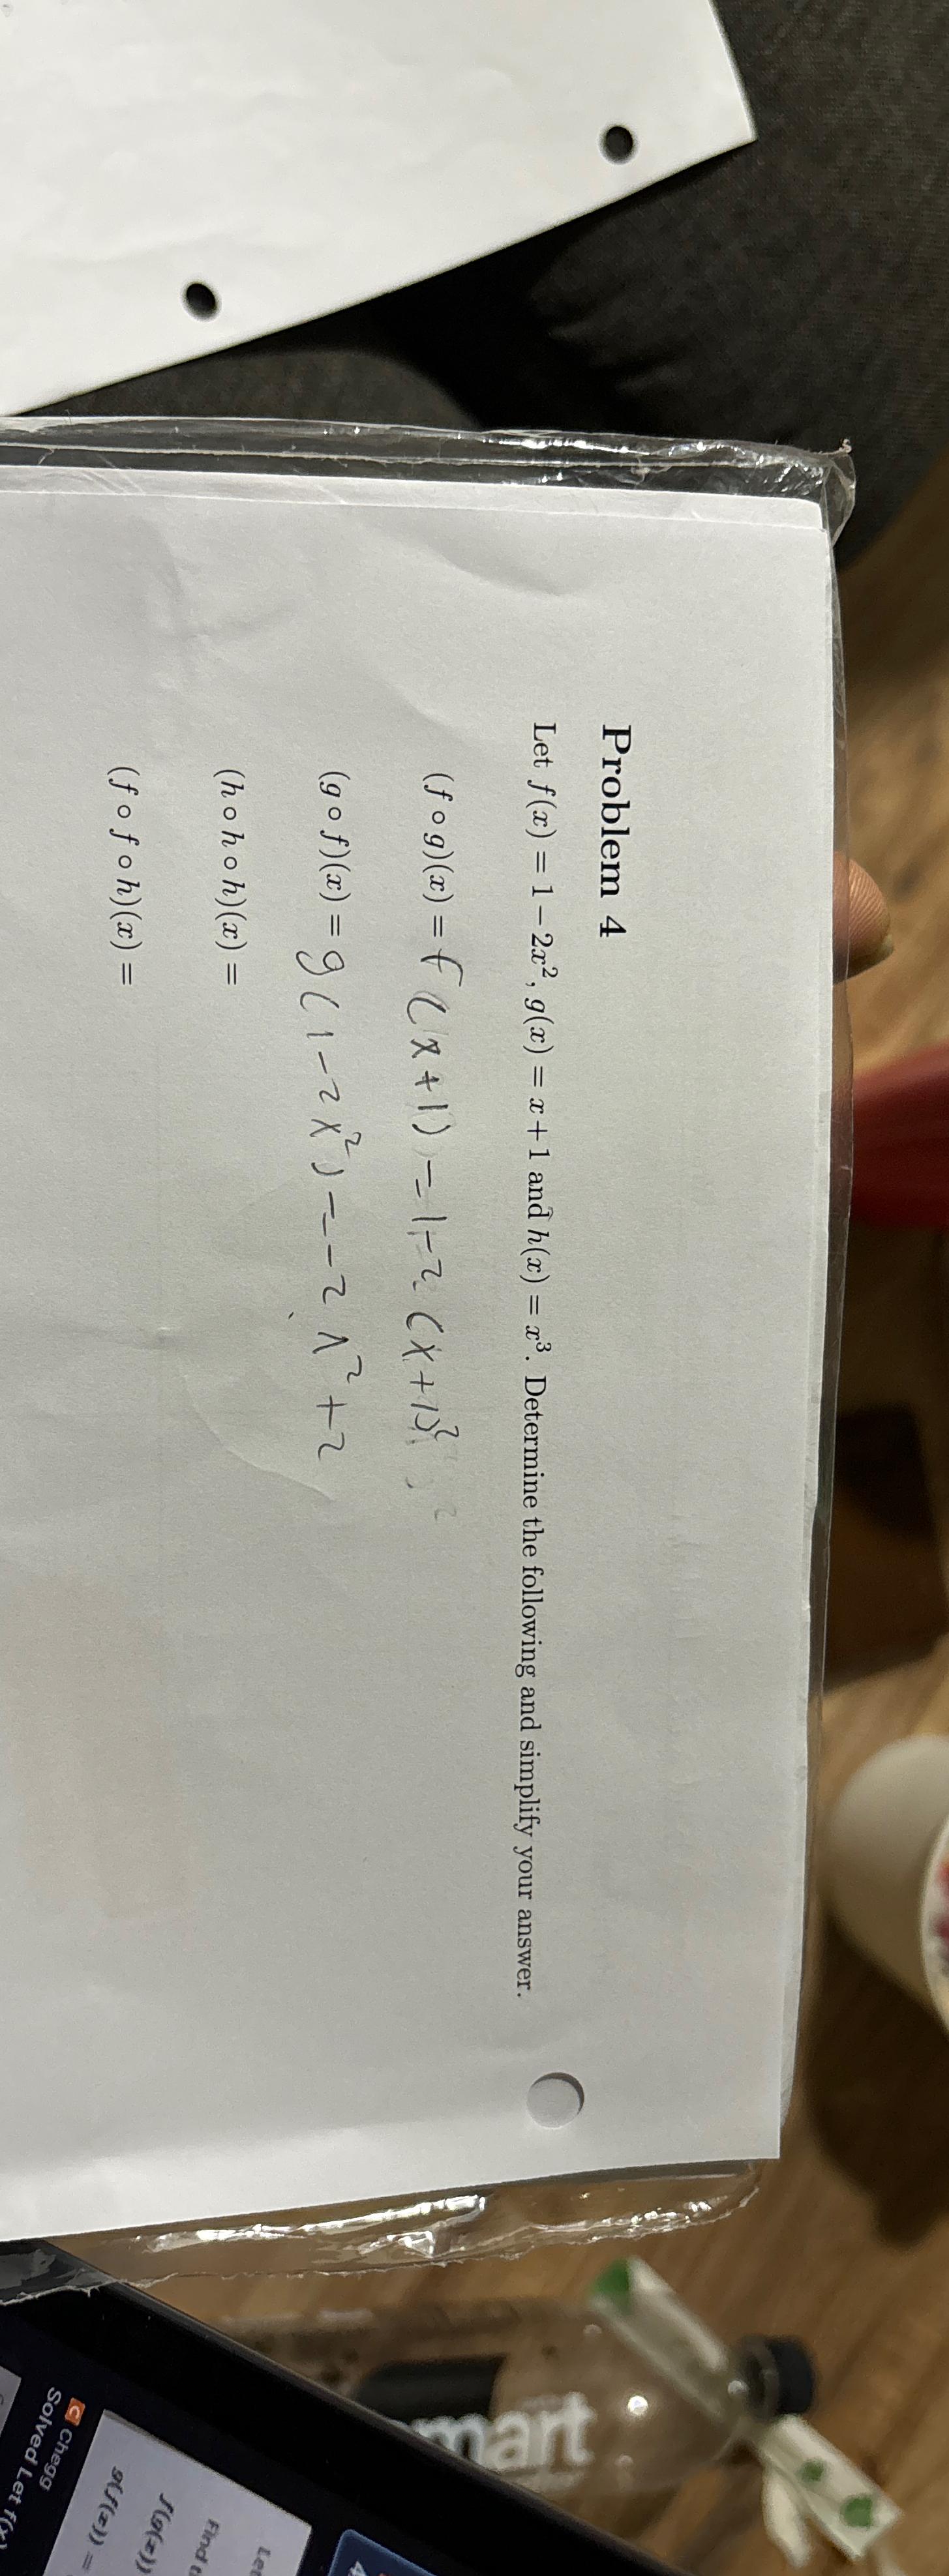 Problem 4
Let f(x) = 1 − 2x², g(x) = x + 1 and h(x) = x³. Determine the following and simplify your answer.
(f ∘ g)(x) = f(x+1) = 1-2(x+1)²
(g ∘ f)(x) = g(1-2x²) = -2x²+2
(h ∘ h ∘ h)(x) =
(f ∘ f ∘ h)(x) =
mart
Let
Find
f(g(x))
g(f(x)) =
Chegg
Solved Let f(x)